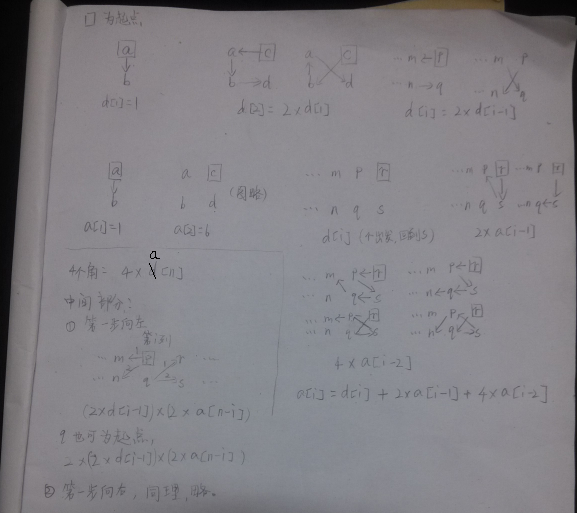 口为起点,
a a←c a c …m←p …m p
b b→d b d …n→q …n q
d[i]=1 d[2]=2×d[1] d[i]=2×d[i-1]
a a c …m p r …m p r …m p r
b b d (图略) …n q s …n q s …n q←s
a[1]=1 a[2]=6 d[i] (个出发,回到s) 2×a[i-1]
4个角= 4×a[n]
…m p←r …m p←r
…n q←s …n←q←s
中间部分:
…m←p r …m p r
…n q s …n q s
① 第一步向左
第i列
…m←p r …
…n q→s …
4×a[i-2]
a[i]=d[i]+2×a[i-1]+4×a[i-2]
(2×d[i-1])×(2×a[n-i])
q也可为起点,
2×(2×d[i-1])×(2×a[n-i])
② 第一步向右,同理,略。